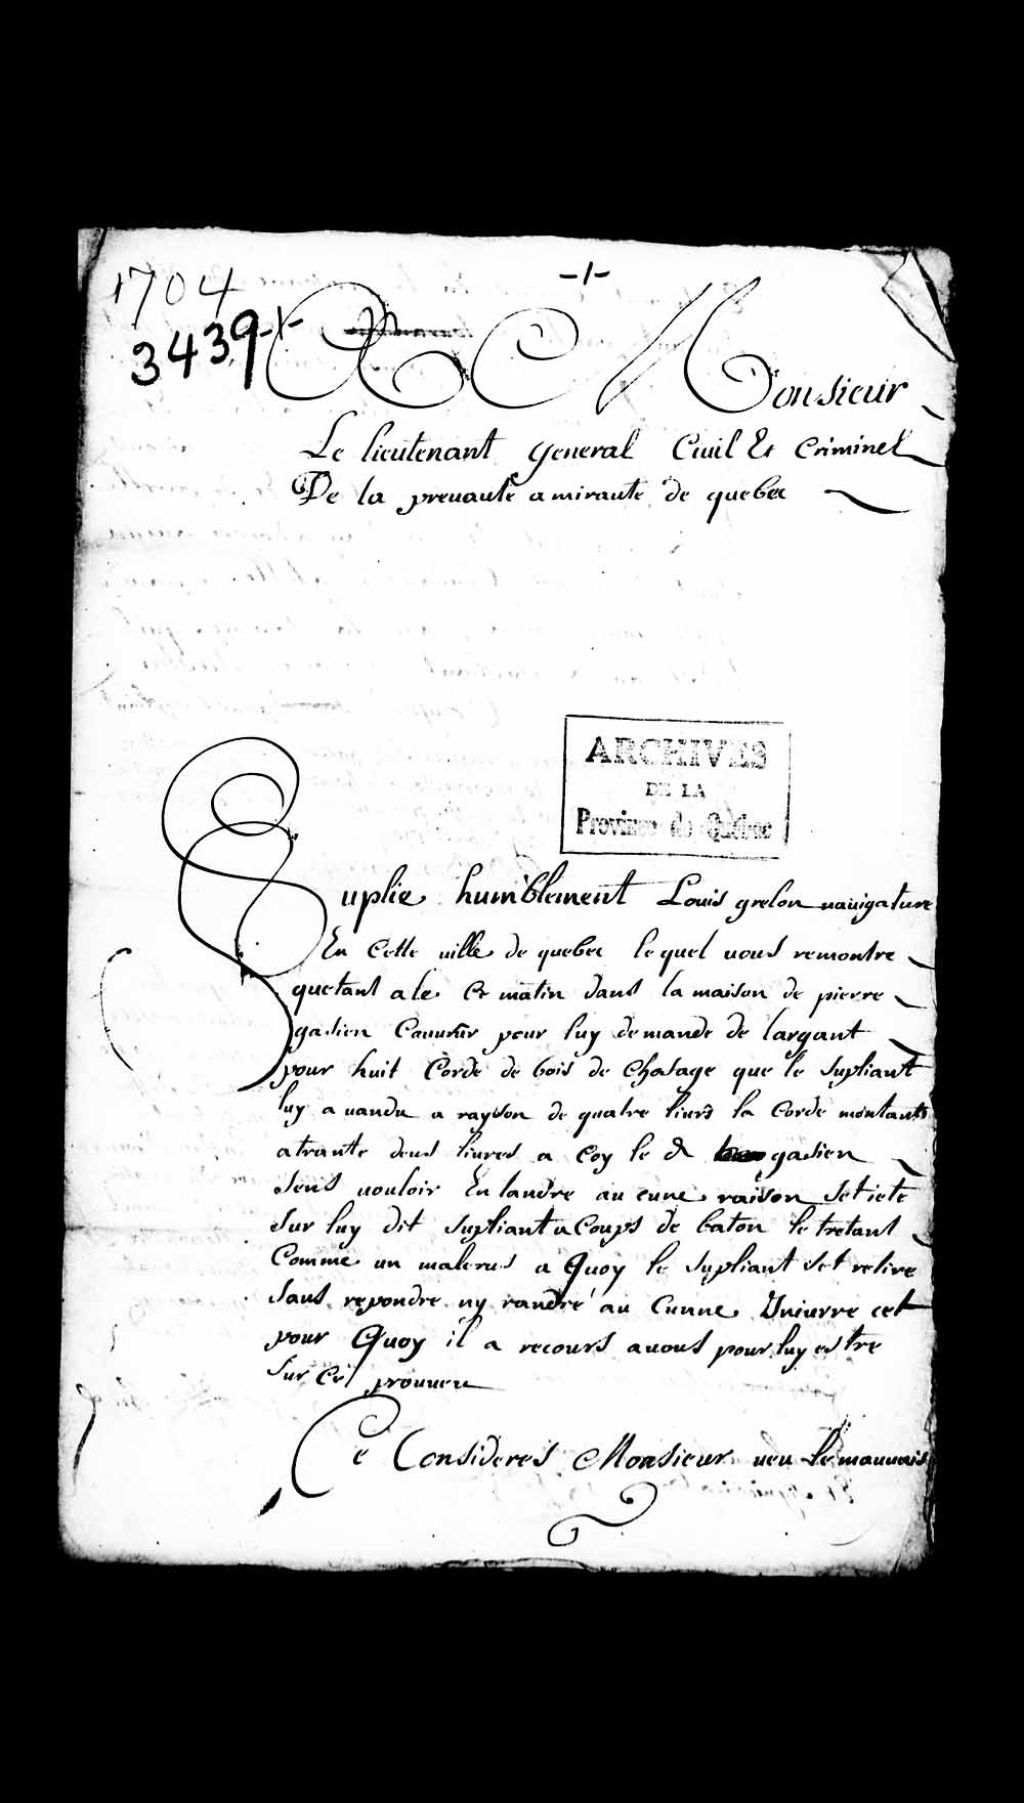 1704
-1-
3439-1-
A Monsieur
Le lieutenant general Ciuil Et Criminel
De la preuaute amiraute de quebec
ARCHIVES
DE LA
Province de Québec
Suplie humblement Louis grelon nauigature
En Cette uille de quebec lequel uous remontre
quetant ale Ce matin dans la maison de pierre
gasien Couurur pour luy demande de largant
pour huit Corde de bois de Chosage que le supliant
luy a uandu a rayson de quatre liurs la Corde montants
atrante deus liures a Coy le d gasien
sens uouloir Enlandre au cune raison setiete
sur luy dit supliant a Coups de baton le tretant
Comme un malerus a Quoy le supliant set retire
sans repondre ny randre au Cunne Iniurre cet
pour Quoy il a recours auous pour luy estre
sur Ce prouueu
Ce Consideres Monsieur ueu Le mauuais